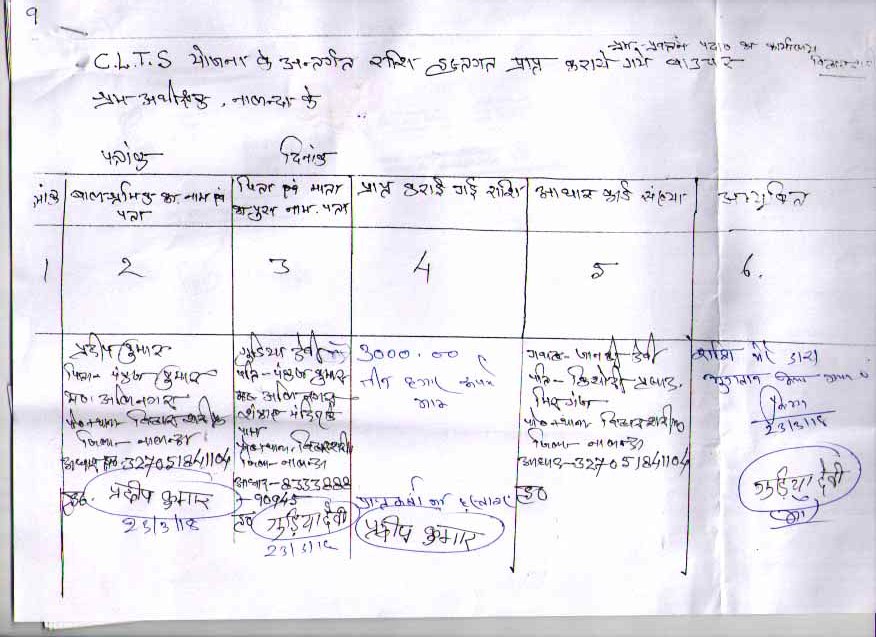 9
C.L.T.S योजना के अन्तर्गत राशि हस्तगत प्राप्त कराये गये वाउचर
श्रम-प्रवर्तन पदा० का कार्यालय
श्रम अधीक्षक, नालन्दा के
पत्रांक
दिनांक
बालश्रमिक का नाम एवं पता
पिता एवं माता का पुरा नाम. पता
प्राप्त कराई गई राशि
आधार कार्ड संख्या
अभ्युक्ति
1
2
3
4
5
6.
प्रदीप कुमार
पिता- पंकज कुमार
पो०+थाना बिहार शरीफ
जिला- नालन्दा
आधार नं०-327051841104
ह०. प्रदीप कुमार
23/3/18
गुड़िया देवी
पति- पंकज कुमार
पो०+थाना. बिहार शरीफ
जिला- नालन्दा
आधार-8333888
-90945
ह० गुड़िया देवी
23/3/18
3000.00
तीन हजार रूपये
मात्र
प्राप्तकर्ता का हस्ताक्षर
प्रदीप कुमार
गवाह- जानकी देवी
पति- किशोरी प्रसाद.
पो०+थाना- बिहार शरीफ
जिला- नालन्दा
आधार-327051841104
ह०
राशि मेरे द्वारा
भुगतान किया गया
23/3/18
गुड़िया देवी